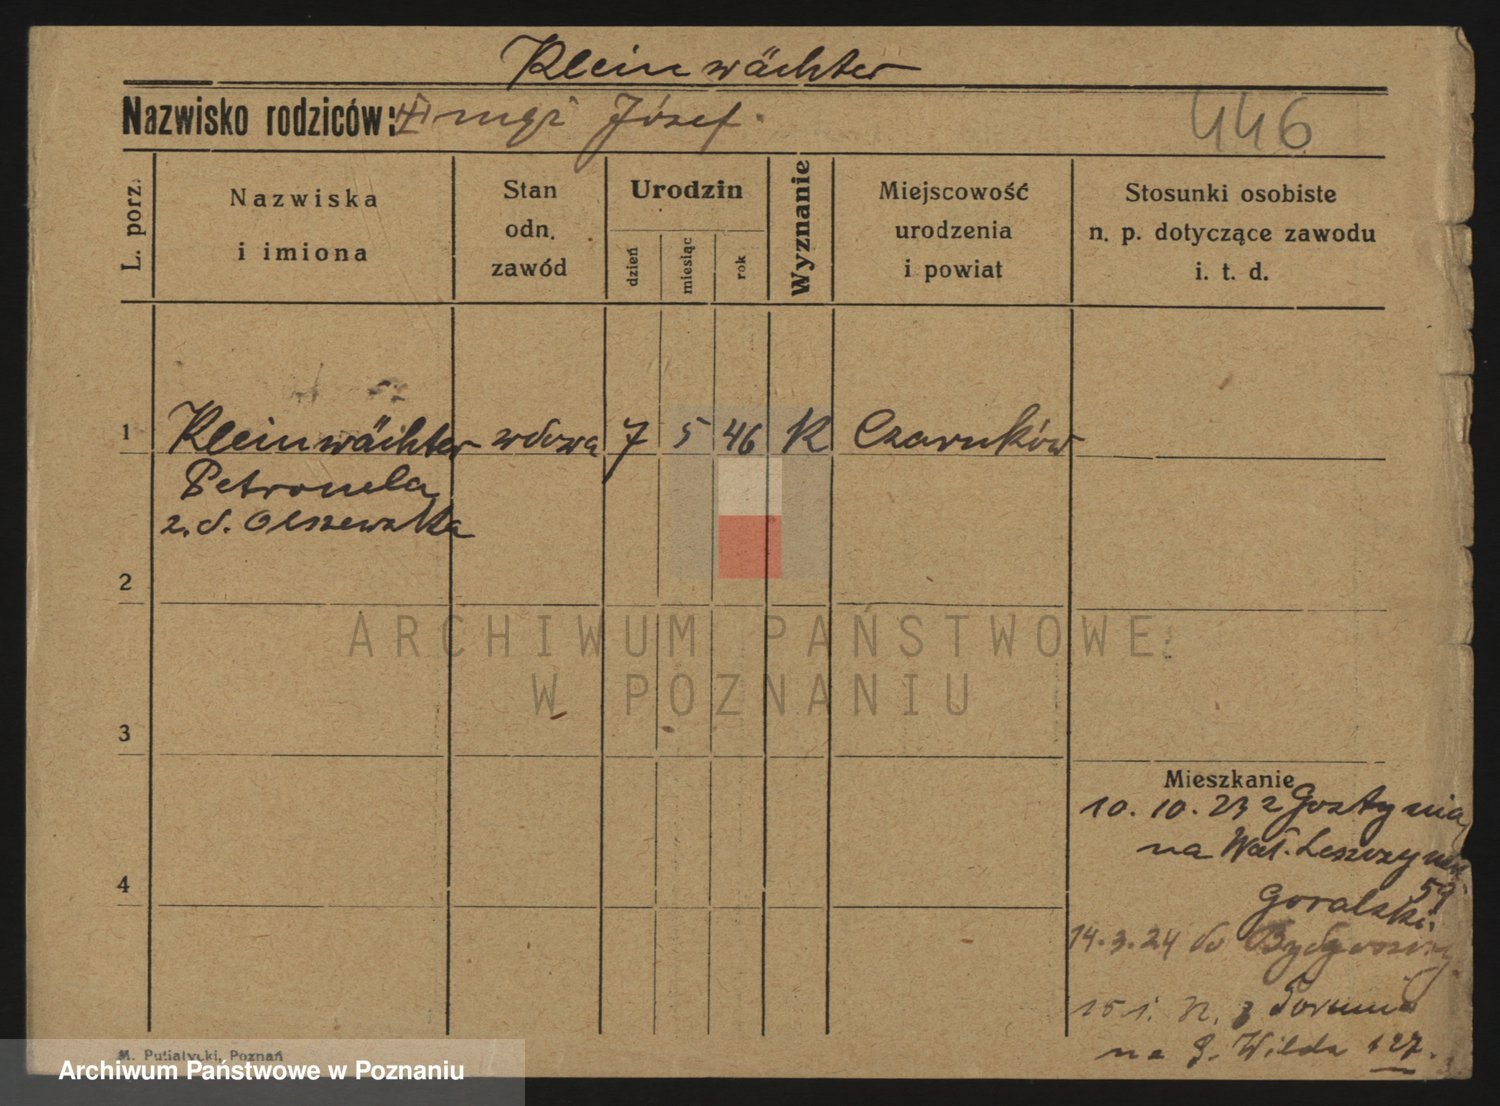 Kleinwächter
Nazwisko rodziców: mąż Józef.
446
L. porz.
Nazwiska
i imiona
Stan
odn.
zawód
Urodzin
dzień
miesiąc
rok
Wyznanie
Miejscowość
urodzenia
i powiat
Stosunki osobiste
n. p. dotyczące zawodu
i. t. d.
1 Kleinwächter wdowa 7 5 46 K Czarnków
Petronela
z. d. Olszewska
2
ARCHIWUM PAŃSTWOWE
W POZNANIU
3
Mieszkanie
10. 10. 23 z Gostynia
na Wał. Leszczyń
59
4
Goralski.
14. 3. 24 do Bydgoszczy
15 1. z Torunia
na G. Wilda 127.
M. Putiatycki, Poznań
Archiwum Państwowe w Poznaniu